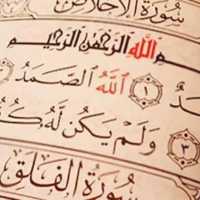 سُورَةُ الْإِخْلَاصِ
اللَّهِ الرَّحْمَٰنِ الرَّحِيمِ
١ اللَّهُ الصَّمَدُ
٣ وَلَمْ يَكُن لَّهُ
سُورَةُ الْفَلَقِ